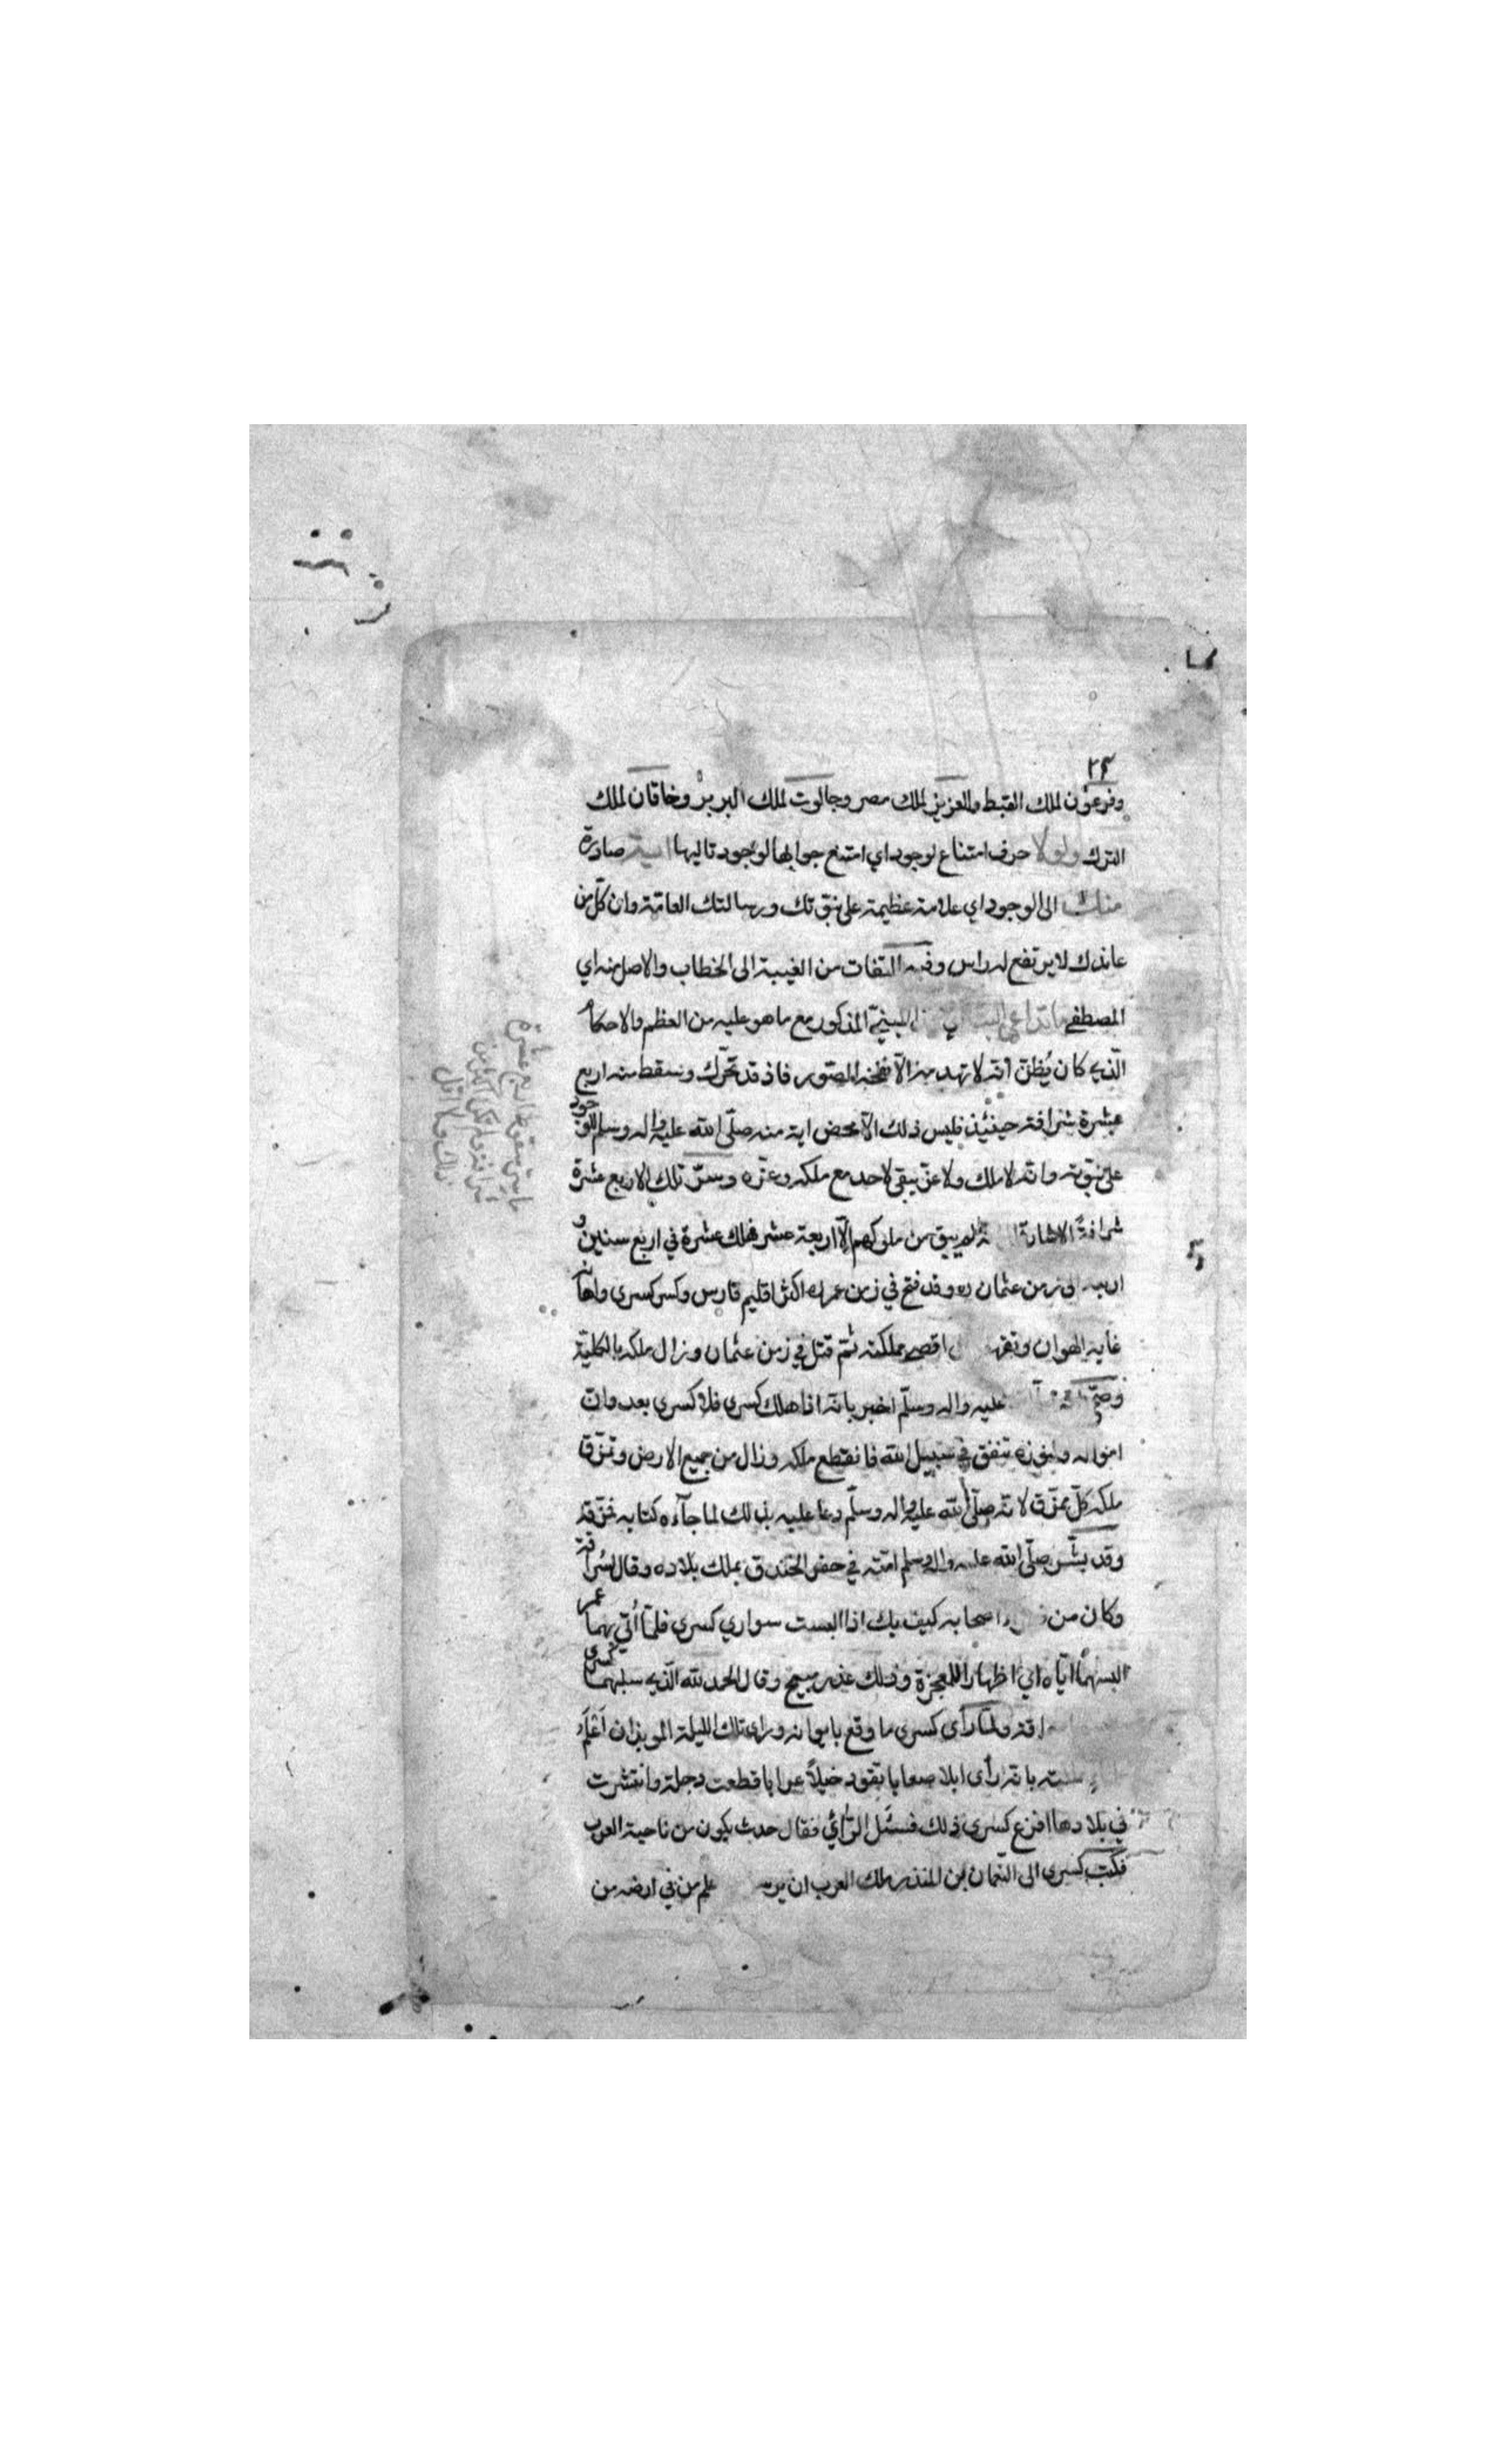 ٢٤
وفرعون لملك القبط والعزيز لملك مصر وجالوت لملك البربر وخاقان لملك
الترك ولولا حرف امتناع لوجود اي امتنع جوابها لوجود تاليها اية صادرة
منك الى الوجود اي علامة عظيمة على نبوتك ورسالتك العامة وان كل من
عاندك لا يرتفع له راس وفيه التفات من الغيبة الى الخطاب والاصل منه اي
المصطفى ما تداعى البناء المذكور مع ما هو عليه من العظم والاحكام
الذي كان يُظن انه لا تهدمه الا نفخة الصور فاذ قد تحرك وسقط منه اربع
عشرة شرافة حينئذ فليس ذلك الا محض اية منه صلى الله عليه واله وسلم
على نبوته وانه لا ملك ولا عز يبقى لاحد مع ملكه وعزه وسر تلك الاربع عشرة
شرافة الاشارة لم يبق من ملوكهم الا اربعة عشر فهلك عشرة في اربع سنين و
اربعة الى زمن عثمان وقد فتح في زمن عمر اكثر اقليم فارس وكسر كسرى واهانه
غاية الهوان وتقهقر اقصى مملكته ثم قتل في زمن عثمان وزال ملكه بالكلية
وصح عليه واله وسلم اخبر بانه اذا هلك كسرى فلا كسرى بعده وان
امواله وكنوزه تنفق في سبيل الله فانقطع ملكه وزال من جميع الارض وتمزق
ملكه كل ممزق لانه صلى الله عليه واله وسلم دعا عليه بذلك لما جاءه كتابه فمزقه
وقد بشر صلى الله عليه واله وسلم امته في حفر الخندق بملك بلاده وقال لسراقة
وكان من اصحابه كيف بك اذا البست سواري كسرى فلما أتي بهما عمر
البسهما اياه اي اظهارا للمعجزة وذلك عذر مبيح وقال الحمد لله الذي سلبهما كسرى
ولما رأى كسرى ما وقع بايوانه وراى تلك الليلة الموبذان اعلم
بانه رأى ابلا صعابا تقود خيلا عرابا قطعت دجلة وانتشرت
في بلادها افزع كسرى ذلك فسئل الرائي فقال حدث يكون من ناحية العرب
فكتب كسرى الى النعمان بن المنذر ملك العرب ان علم من في ارضه من